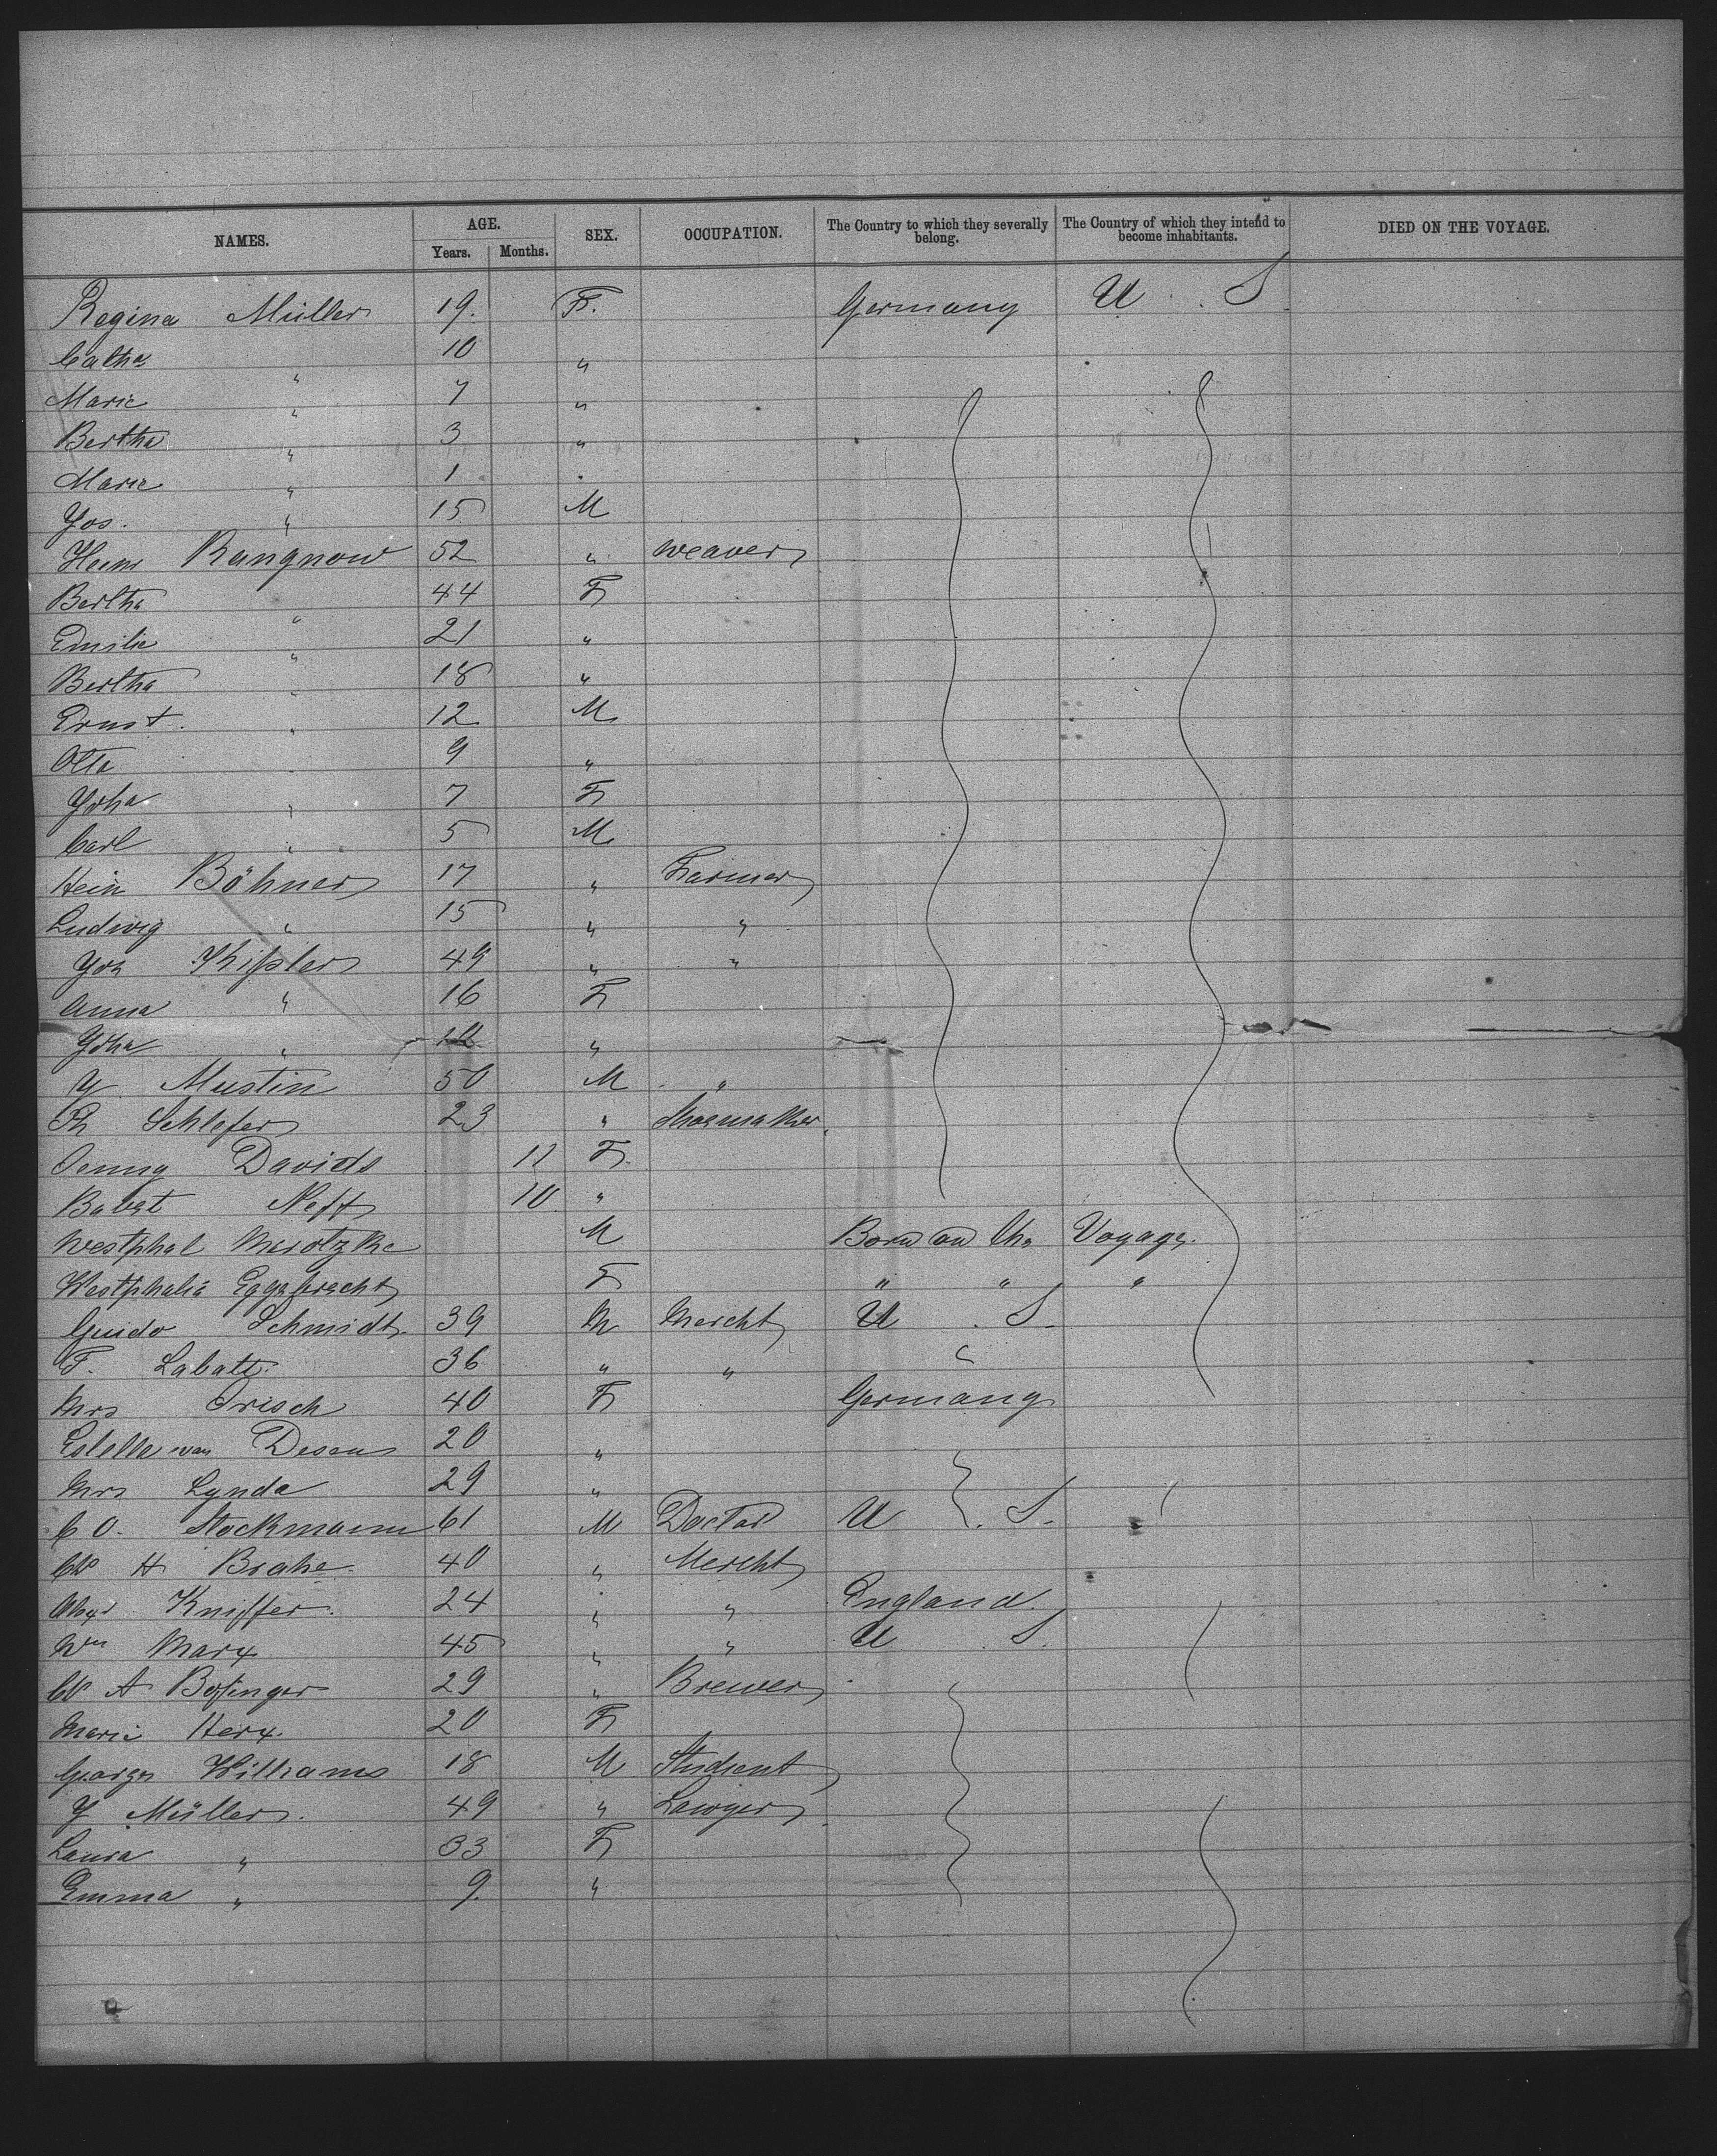 NAMES. AGE. Years. Months. SEX. OCCUPATION. The Country to which they severally belong. The Country of which they intend to become inhabitants. DIED ON THE VOYAGE.
Regina Müller 19. F. Germany U. S
Catha " 10 "
Marie " 7 "
Bertha " 3 "
Marie " 1 "
Jos. " 15 M
Heinr Rangnow 52 " weaver
Bertha " 44 F
Emilie " 21 "
Bertha " 18 "
Ernst " 12 M
Otto " 9 "
Joha " 7 F
Carl " 5 M
Hein Böhner 17 " Farmer
Ludwig " 15 " "
Joh 49 " "
Anna " 16 F
Joha " "
J Mustin 50 M "
Schlefer 23 " Shoemaker
Jenny Davids 11 F.
Babet Neff 10 "
Westphal Merotzke M Born on the Voyage.
Westphalia Eggebrecht F " " "
Guido Schmidt 39 M Mercht U. S.
F. Labatt 36 " " "
Mrs Irisch 40 F Germany
Estella van 20 "
Mrs Lynda 29 "
C O. Stockmann 61 M Doctor U. S.
H Brahe 40 " Mercht
Kniffer. 24 " " England
Wm Marx 45 " " U S.
A 29 " Brewer
Marie Herx. 20 F
George Williams 18 M Student
J Müller. 49 " Lawyer
Laura " 33 F
Emma " 9. "